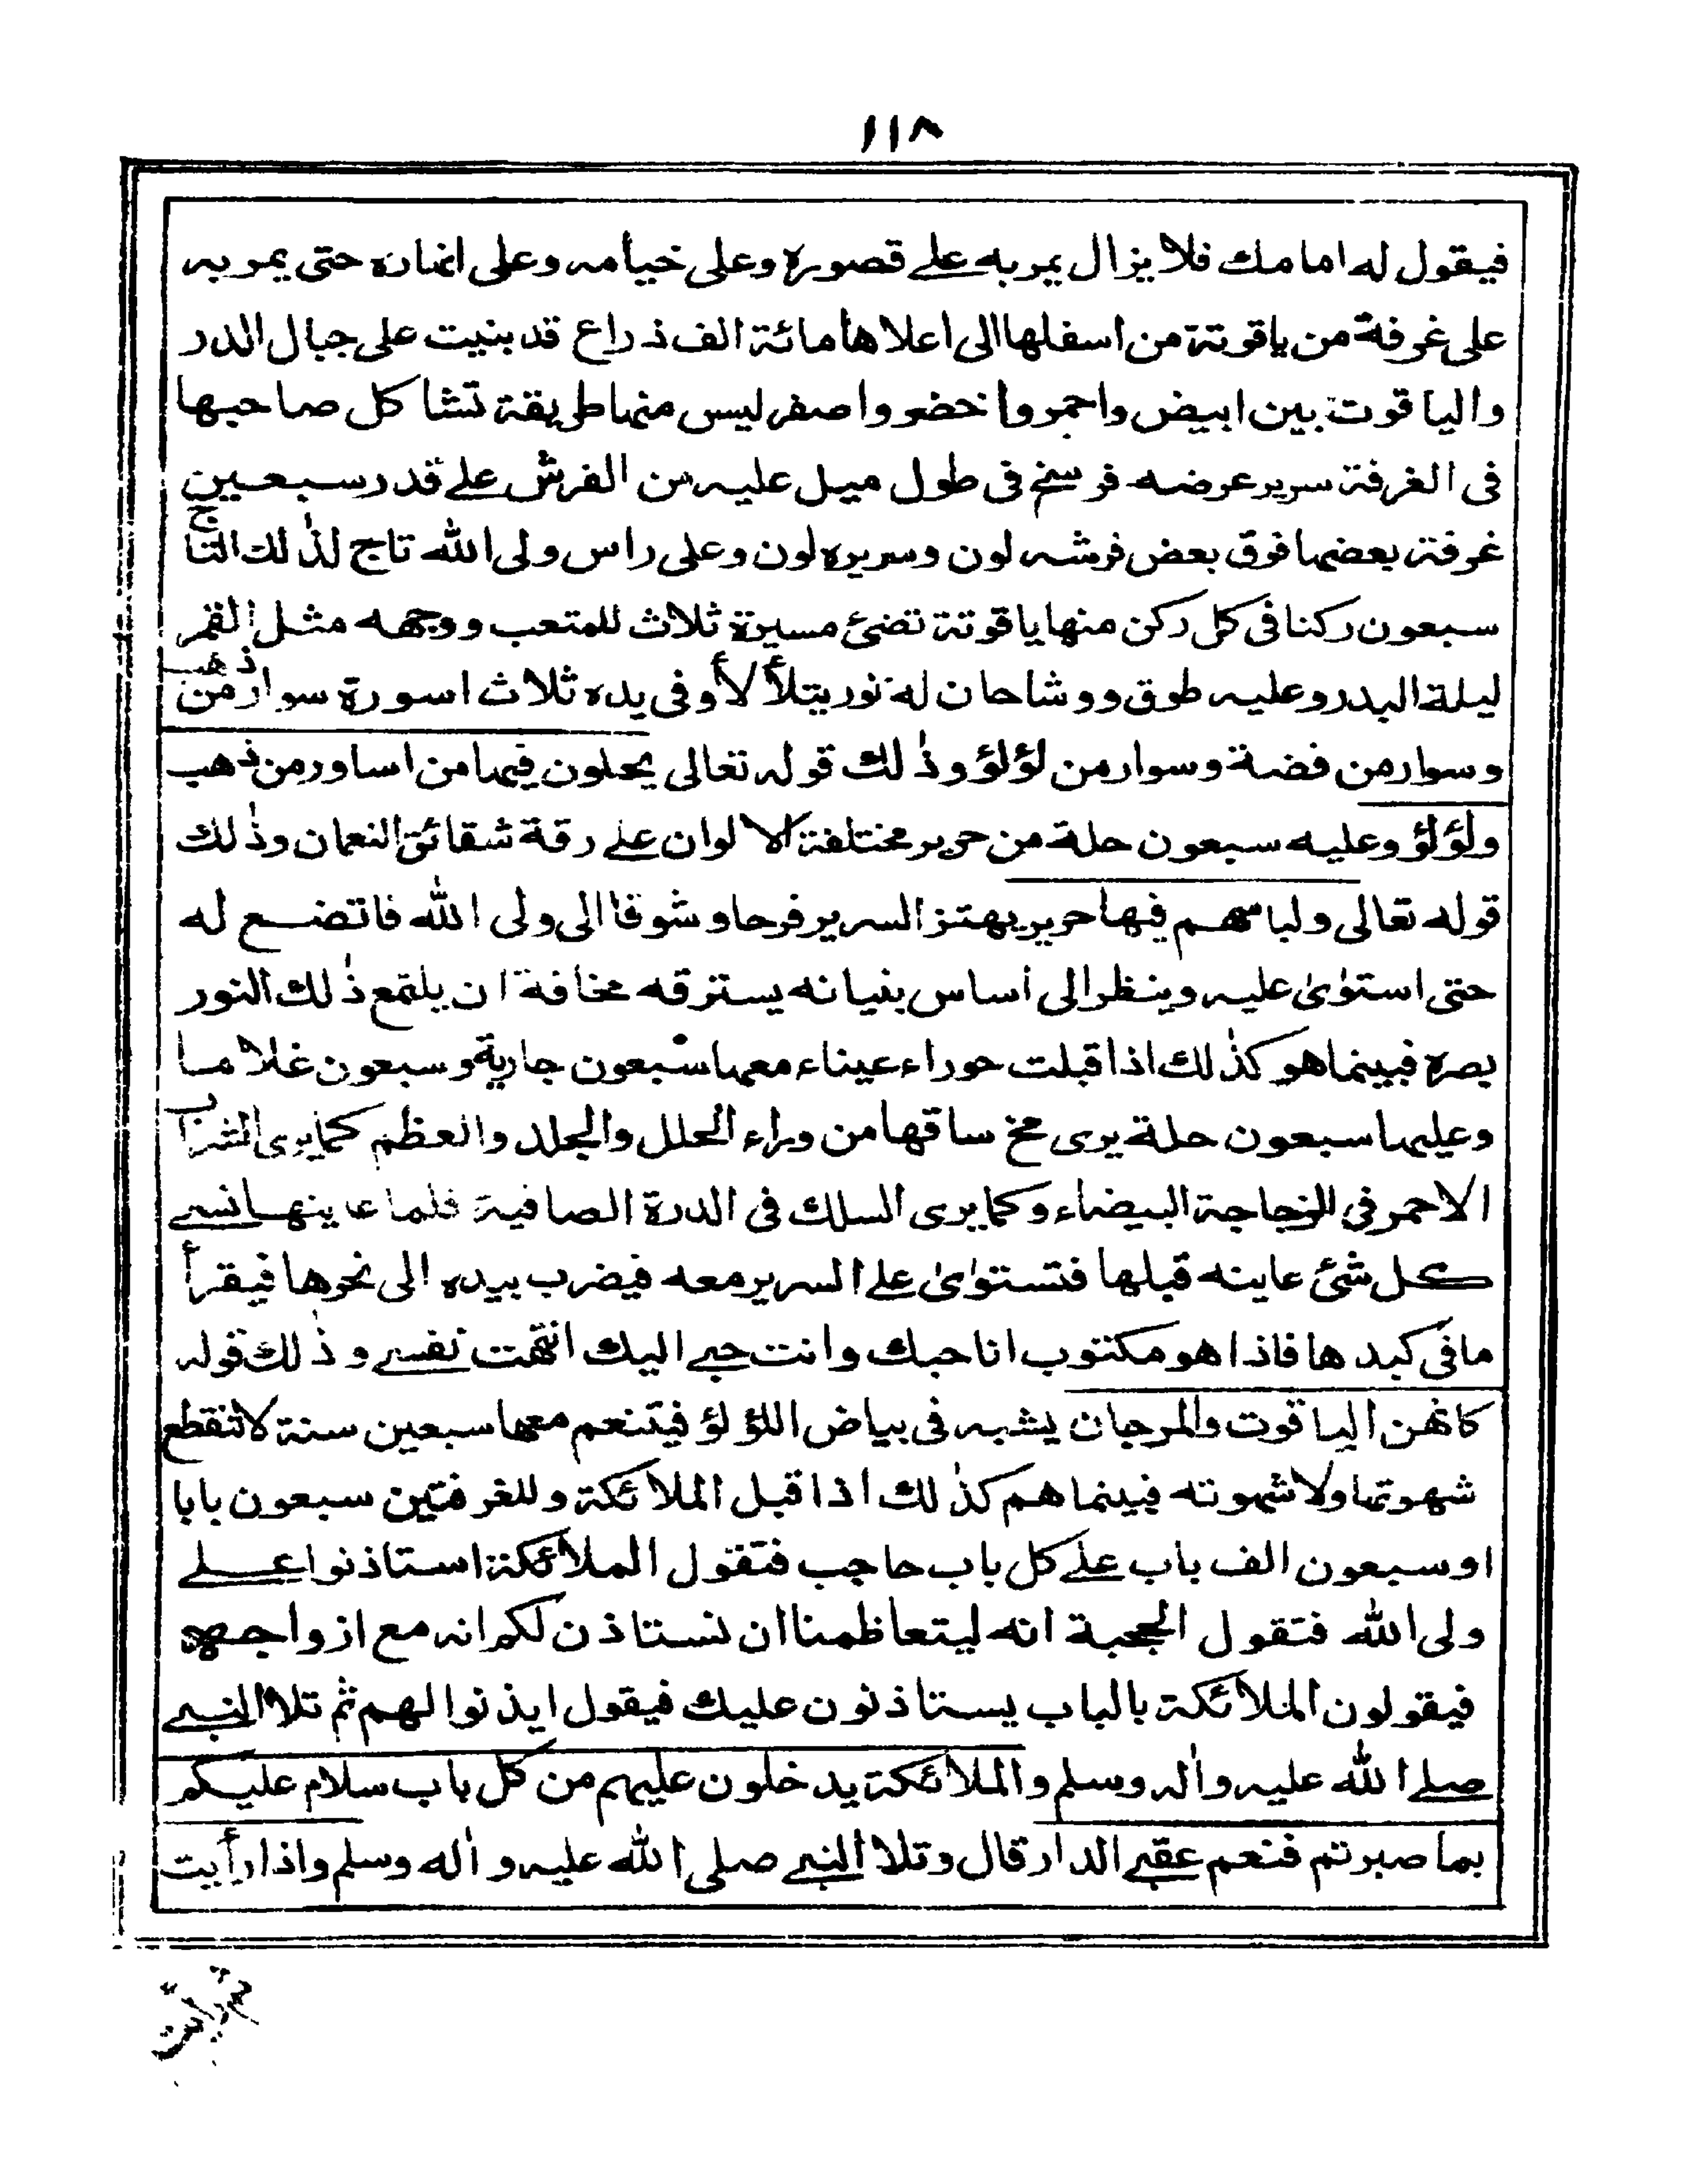 ١١٨
فيقول له امامك فلا يزال يمر به على قصوره وعلى خيامه وعلى انهاره حتى يمر به
على غرفة من ياقوتة من اسفلها الى اعلاها مائة الف ذراع قد بنيت على جبال الدر
والياقوت بين ابيض واحمر واخضر واصفر ليس منها طريقة تشاكل صاحبها
فى الغرفة سرير عرضه فرسخ فى طول ميل عليه من الفرش على قدر سبعين
غرفة بعضها فوق بعض فرشه لون وسريره لون وعلى راس ولى الله تاج لذلك التاج
سبعون ركنا فى كل ركن منها ياقوتة تضئ مسيرة ثلاث للمتعب ووجهه مثل القمر
ليلة البدر وعليه طوق ووشاحان له نور يتلألأ وفى يده ثلاث اسورة سوار من ذهب
وسوار من فضة وسوار من لؤلؤ وذلك قوله تعالى يحلون فيها من اساور من ذهب
ولؤلؤ وعليه سبعون حلة من حرير مختلفة الالوان على رقة شقائق النعمان وذلك
قوله تعالى ولباسهم فيها حرير يهتز السرير فرحا وشوقا الى ولى الله فاتضع له
حتى استوى عليه وينظر الى أساس بنيانه يسترقه مخافة ان يلتمع ذلك النور
بصره فبينما هو كذلك اذا قبلت حوراء عيناء معها سبعون جارية وسبعون غلاما
وعليها سبعون حلة يرى مخ ساقها من وراء الحلل والجلد والعظم كما يرى الشراب
الاحمر فى الزجاجة البيضاء وكما يرى السلك فى الدرة الصافية فلما عاينها نسى
كل شئ عاينه قبلها فتستوى على السرير معه فيضرب بيده الى نحرها فيقرأ
ما فى كبدها فاذا هو مكتوب انا حبك وانت حبى اليك انتهت نفسى وذلك قوله
كانهن الياقوت والمرجان يشبه فى بياض اللؤلؤ فيتنعم معها سبعين سنة لا تنقطع
شهوتها ولا شهوته فبينما هم كذلك اذا قبل الملائكة وللغرفتين سبعون بابا
او سبعون الف باب على كل باب حاجب فتقول الملائكة استاذنوا على
ولى الله فتقول الحجبة انه ليتعاظمنا ان نستاذن لكم انه مع ازواجه
فيقولون الملائكة بالباب يستاذنون عليك فيقول ايذنوا لهم ثم تلا النبى
صلى الله عليه وآله وسلم والملائكة يدخلون عليهم من كل باب سلام عليكم
بما صبرتم فنعم عقبى الدار قال وتلا النبى صلى الله عليه وآله وسلم واذا رأيت